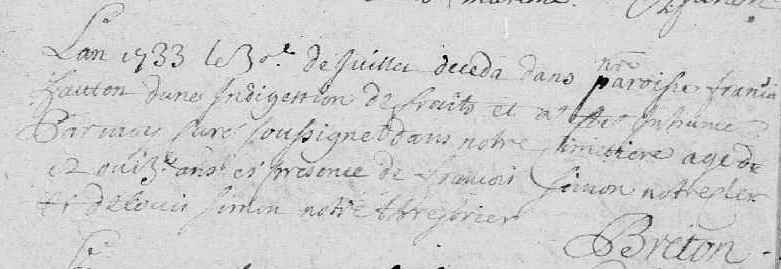 Lan 1733 le 30e de Juillet deceda dans nre paroisse francois
hauton dune Indigestion de fruits et a este Inhumé
Par moy curé soussigné dans notre cimetiere agé de
ans en presence de francois simon notre
et de louis simon notre thresorier
Breton